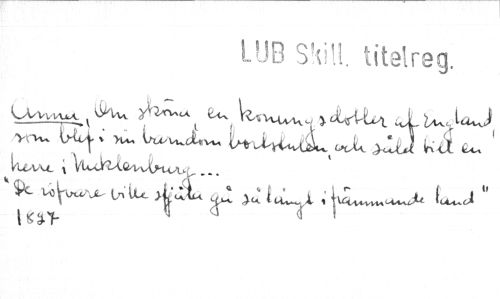 LUB Skill. titelreg.
Anna, Om sköna, en konungsdotter af England,
som blef i sin barndom bortstulen, och såld till en
herre i Mecklenburg...
"De röfvare ville stjäla gå så långt i främmande land"
1827